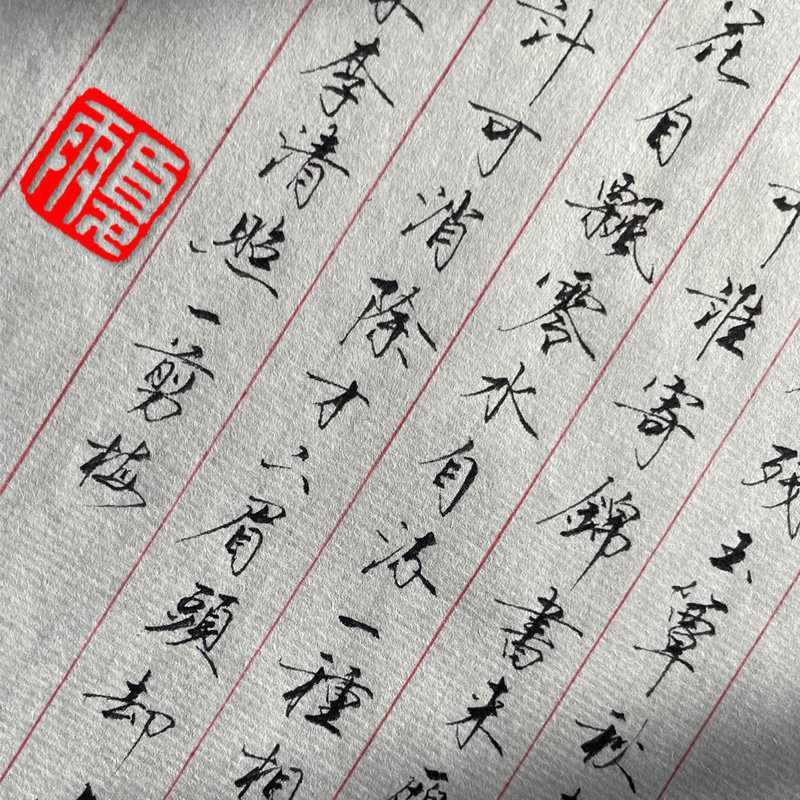 残玉簟秋
中誰寄錦書来
花自飄零水自流一種相
計可消除才下眉頭却
李清照一剪梅